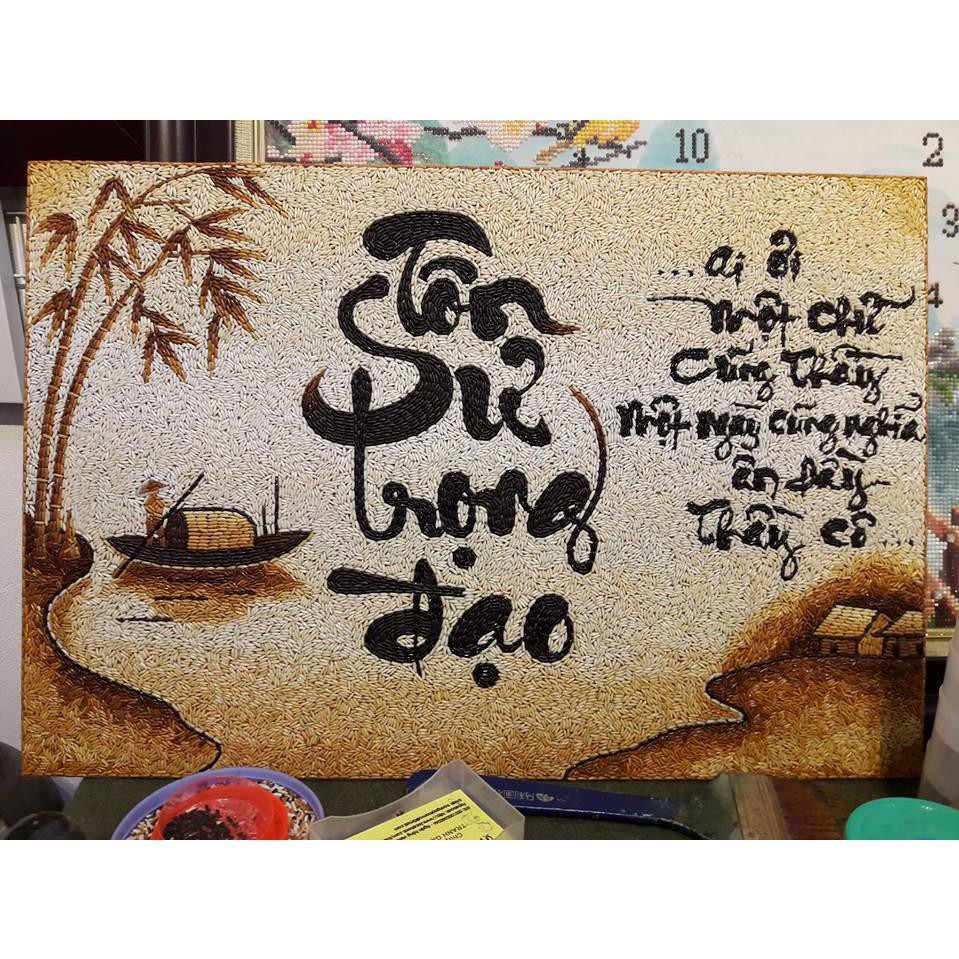 Tôn
Sư
trọng
đạo
... ai ơi
một chữ
Cũng Thầy
một ngày cũng nghĩa
ân đầy
Thầy cô ...
10
2
3
4